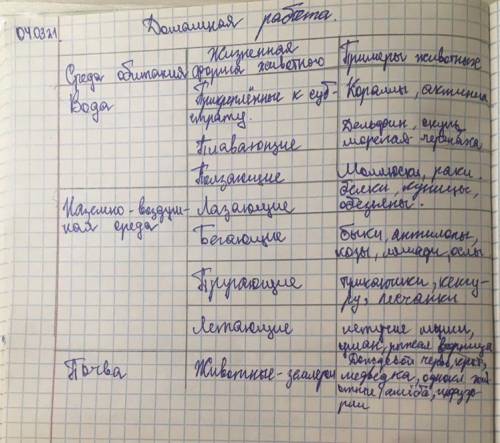 04.03.21 Домашняя работа.
Среда обитания Жизненная форма животного Примеры животных
Вода Прикреплённые к суб- Кораллы, актинии
страту.
Плавающие Дельфин, окунь,
морская черепаха
Ползающие Моллюски, раки.
Наземно-воздуш- Лазающие Белки, куницы,
ная среда обезьяны.
Бегающие быки, антилопы,
козы, лошади, ослы
Прыгающие тушканчики, кенгу-
ру, песчанки
Летающие летучие мыши,
рыжая вечерница
Почва Животные-землерои Дождевой червь, крот,
медведка,
амёба, инфузо-
рии